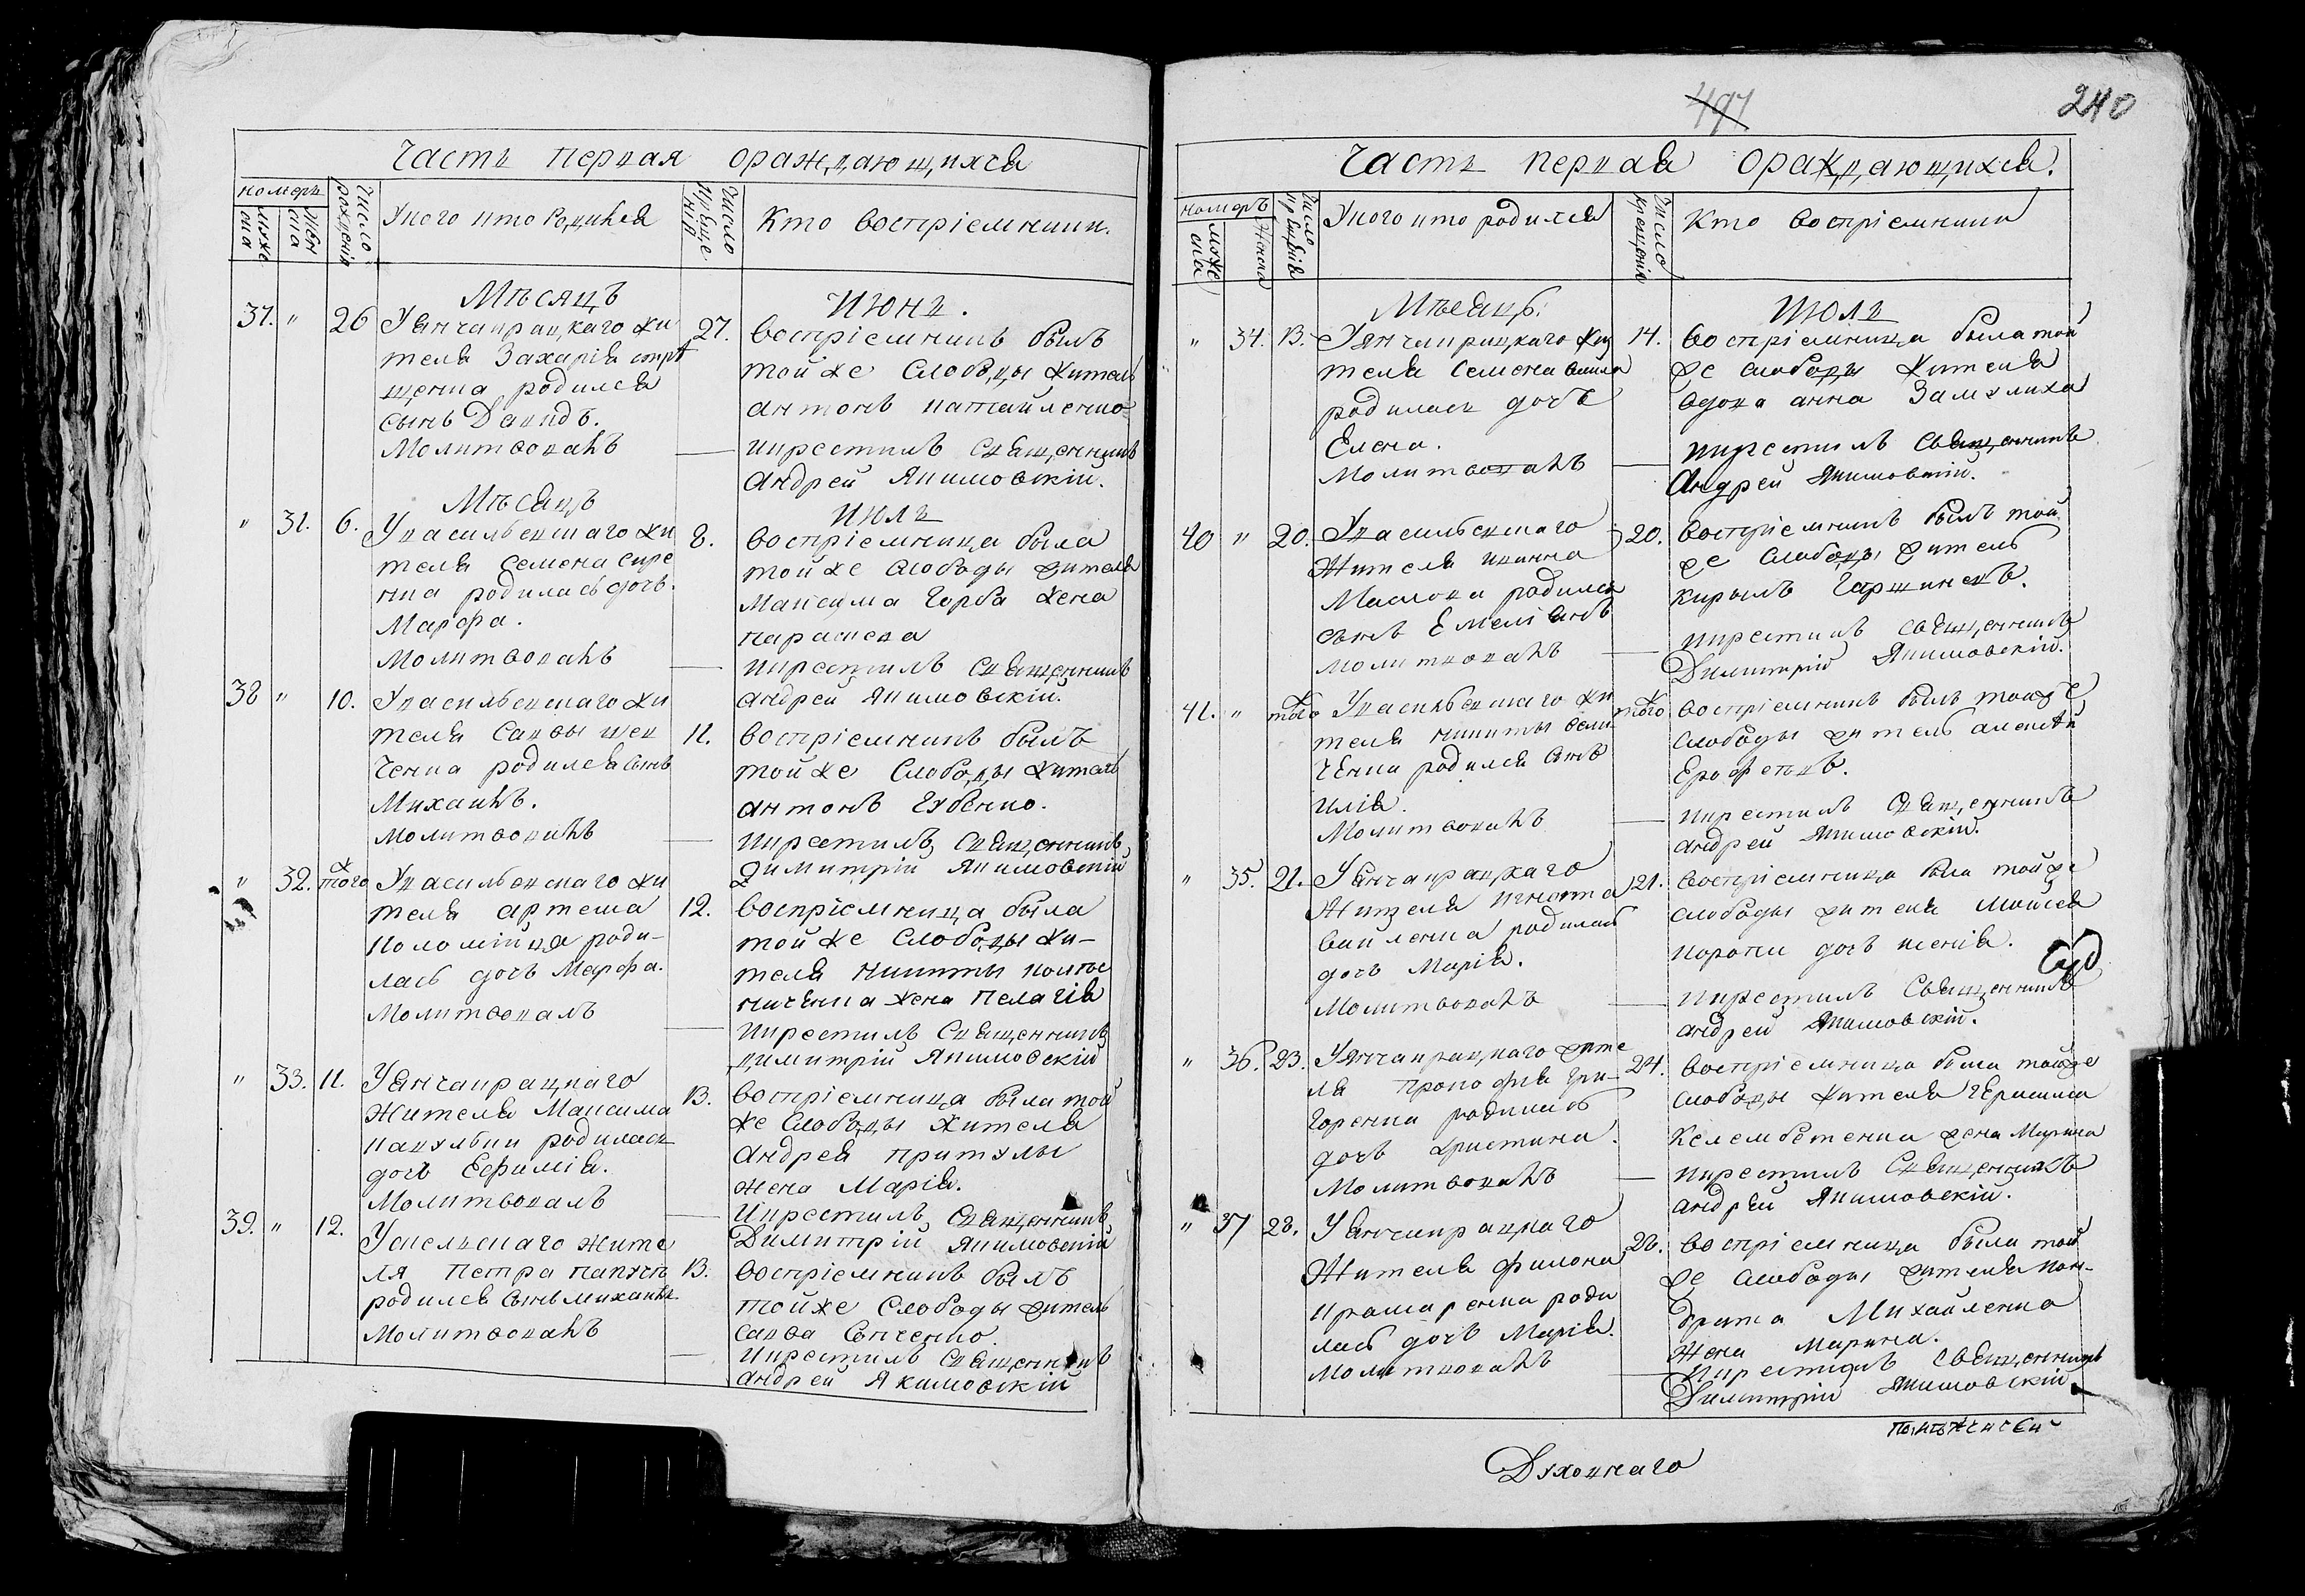 Часть первая ораждающихся
номеръ
муже
ска
жен
ска
число рожденія
У кого кто родился
число крещенія
Кто воспріемники.
Мѣсяцъ
Июнь.
37. " 26 У Янчакрацкаго жи
теля Захарія стре
щенка родился
сынъ Давидъ.
Молитвовалъ
27. Воспріемникъ былъ
той же слободы житель
Антонъ
икрестилъ священникъ
Андрей Якимовскій.
Мѣсяцъ
Июль
" 31. 6. У васильевскаго жи
теля Семена сире
нка родилась дочь
Марфа.
Молитвовалъ
8. Воспріемница была
той же слободы жителя
Максима Горба жена
параскева
икрестилъ священникъ
Андрей Якимовскій.
38 " 10. У васильевскаго жи
теля Саввы шев
ченка родился сынъ
Михаилъ.
Молитвовалъ
11. Воспріемникъ былъ
той же слободы житель
Антонъ Губенко.
икрестилъ священникъ
Димитрій Якимовскій
" 32. того ж У васильевскаго жи
теля Артема
Коломійця роди-
лась дочь Марфа.
Молитвовалъ
12. Воспріемница была
той же слободы жи-
теля Никиты
жена Пелагія
икрестилъ священникъ
Димитрій Якимовскій
" 33. 11. У Янчакрацкаго
жителя Максима
накулбки родилась
дочь Ефимія.
Молитвовалъ
13. Воспріемница была той
же слободы жителя
Андрея притулы
жена Марія.
икрестилъ священникъ
Димитрій Якимовскій
39. " 12. жите
ля Петра
родился сынъ Михаилъ
Молитвовалъ
13. Воспріемникъ былъ
той же слободы житель
савва
икрестилъ священникъ
Андрей Якимовскій
497
240
Часть первая ораждающихся.
номеръ
муже
ска
женска
число рожденія
У кого кто родился
число крещенія
Кто воспріемники
Мѣсяцъ
Июль
" 34. 13. У Янчакрацкаго жи
теля Семена
родилась дочь
Елена.
Молитвовалъ
14. Воспріемница была той
же слободы жителя
вдова анна Замулиха
икрестилъ священникъ
Андрей Якимовскій.
40 " 20. У васильевскаго
жителя ивана
Маслова родился
сынъ Емеліянъ
молитвовалъ
20. Воспріемникъ былъ той
же слободы житель
Кирылъ
икрестилъ священникъ
Димитрій Якимовскій.
41. " того ж У васильевскаго жи
теля никиты вели
чкина родился сынъ
илія.
Молитвовалъ
того ж Воспріемникъ былъ той же
слободы житель алексѣй
Ерофѣевъ.
икрестилъ священникъ
андрей Якимовскій.
" 35. 21. У Янчакрацкаго
жителя игната
родилась
дочь Марія.
Молитвовалъ
21. Воспріемница была той же
слободы жителя Моисея
дочь ксенія.
икрестилъ священникъ
андрей Якимовскій.
" 36. 23. У Янчакрацкаго жите
ля Прокофія Гри-
горенка родилась
дочь христина.
Молитвовалъ
24. Воспріемница была той же
слободы жителя Герасима
Келембетенка жена Марина
икрестилъ священникъ
андрей Якимовскій.
" 37 28. У Янчакрацкаго
жителя филона
крамаренка роди
лась дочь Марія.
Молитвовалъ
28. Воспріемница была той
же слободы жителя кон-
драта Михайленка
жена Марина.
икрестилъ священникъ
Димитрій Якимовскій
Духовнаго